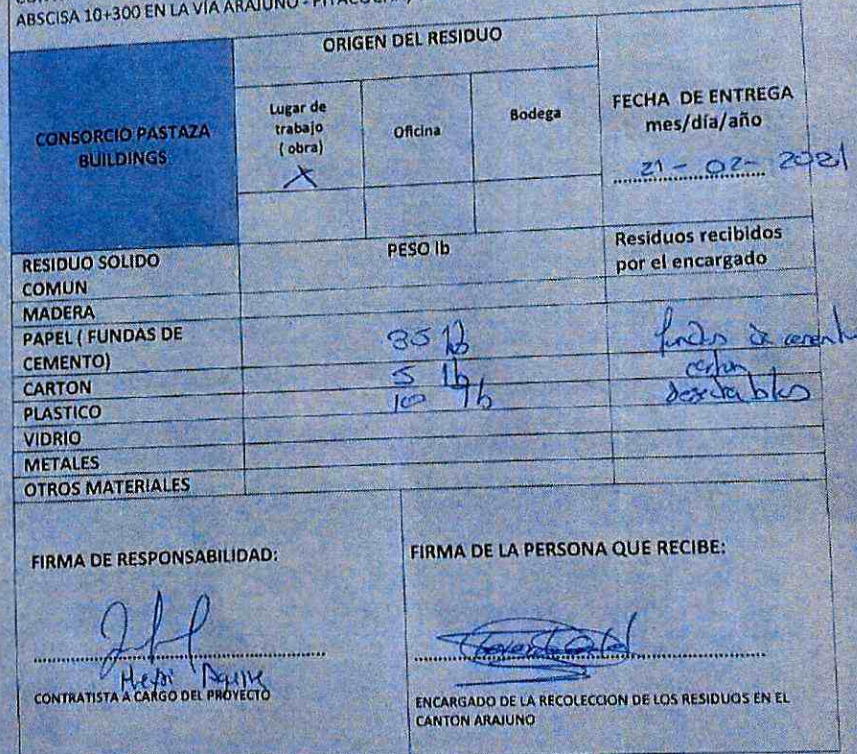 ABSCISA 10+300 EN LA VÍA ARAJUNO -
ORIGEN DEL RESIDUO
CONSORCIO PASTAZA
BUILDINGS
Lugar de
trabajo
( obra)
X
Oficina
Bodega
FECHA DE ENTREGA
mes/día/año
21 - 02 - 2021
RESIDUO SOLIDO
COMUN
PESO lb
Residuos recibidos
por el encargado
MADERA
PAPEL ( FUNDAS DE
CEMENTO)
35 lb
fundas de cemento
CARTON
5 lb
carton
PLASTICO
100 lb
desechables
VIDRIO
METALES
OTROS MATERIALES
FIRMA DE RESPONSABILIDAD:
CONTRATISTA A CARGO DEL PROYECTO
FIRMA DE LA PERSONA QUE RECIBE:
ENCARGADO DE LA RECOLECCION DE LOS RESIDUOS EN EL
CANTON ARAJUNO